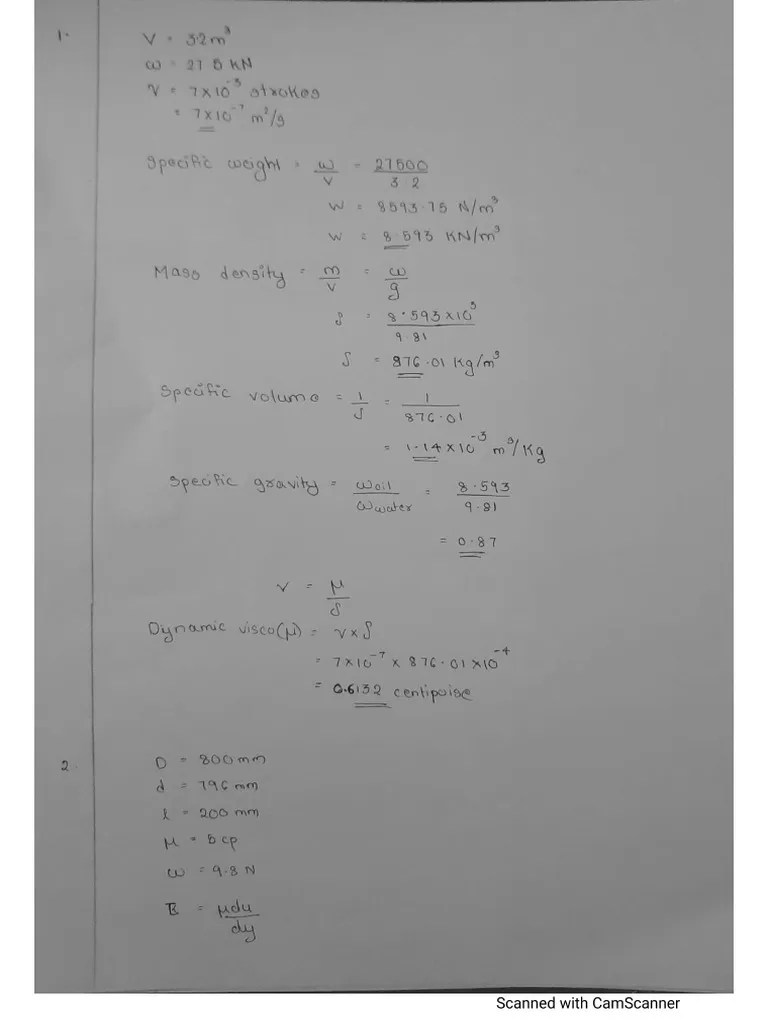 1.
V = 3.2 m³
ω = 27.5 KN
ν = 7×10⁻³ strokes
= 7×10⁻⁷ m²/s
Specific weight = ω/V = 27500/3.2
W = 8593.75 N/m³
W = 8.593 KN/m³
Mass density = m/V = ω/g
ρ = 8.593×10³/9.81
ρ = 876.01 Kg/m³
Specific volume = 1/ρ = 1/876.01
= 1.14×10⁻³ m³/Kg
Specific gravity = ωoil/ωwater = 8.593/9.81
= 0.87
ν = μ/ρ
Dynamic visco(μ) = ν×ρ
= 7×10⁻⁷ × 876.01 ×10⁻⁴
= 0.6132 centipoise
2.
D = 800 mm
d = 796 mm
l = 200 mm
μ = 5 cp
ω = 9.8 N
τ = μdu/dy
Scanned with CamScanner